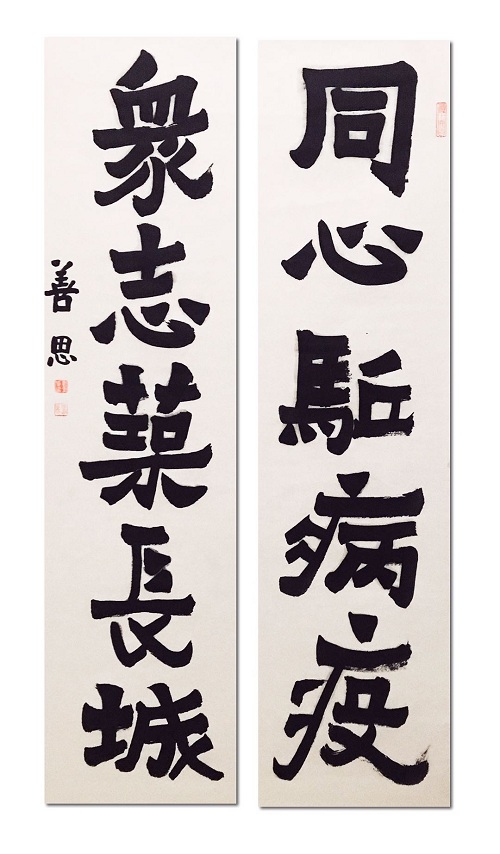 同心駈病疫
衆志築長城
善思